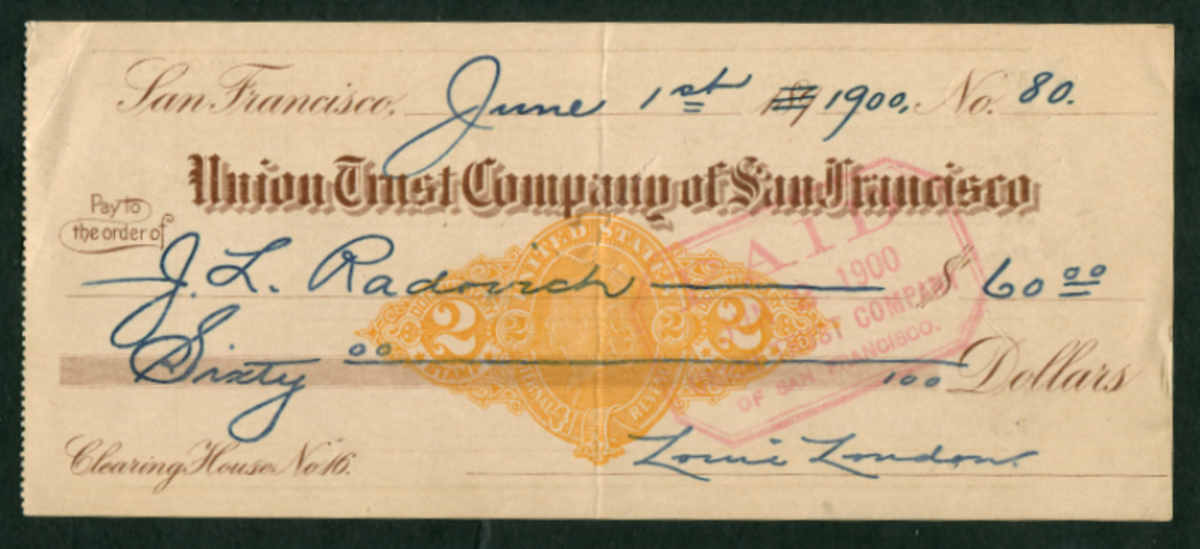 San Francisco, June 1st 1900, No. 80.
Union Trust Company of San Francisco
Pay to
the order of
J. L. Radovich $ 60 00
UNITED STATES
2 2 2 2
STAMP
Sixty 00 100 Dollars
PAID
1900
COMPANY
OF SAN FRANCISCO.
Clearing House No 16.
Louis London.